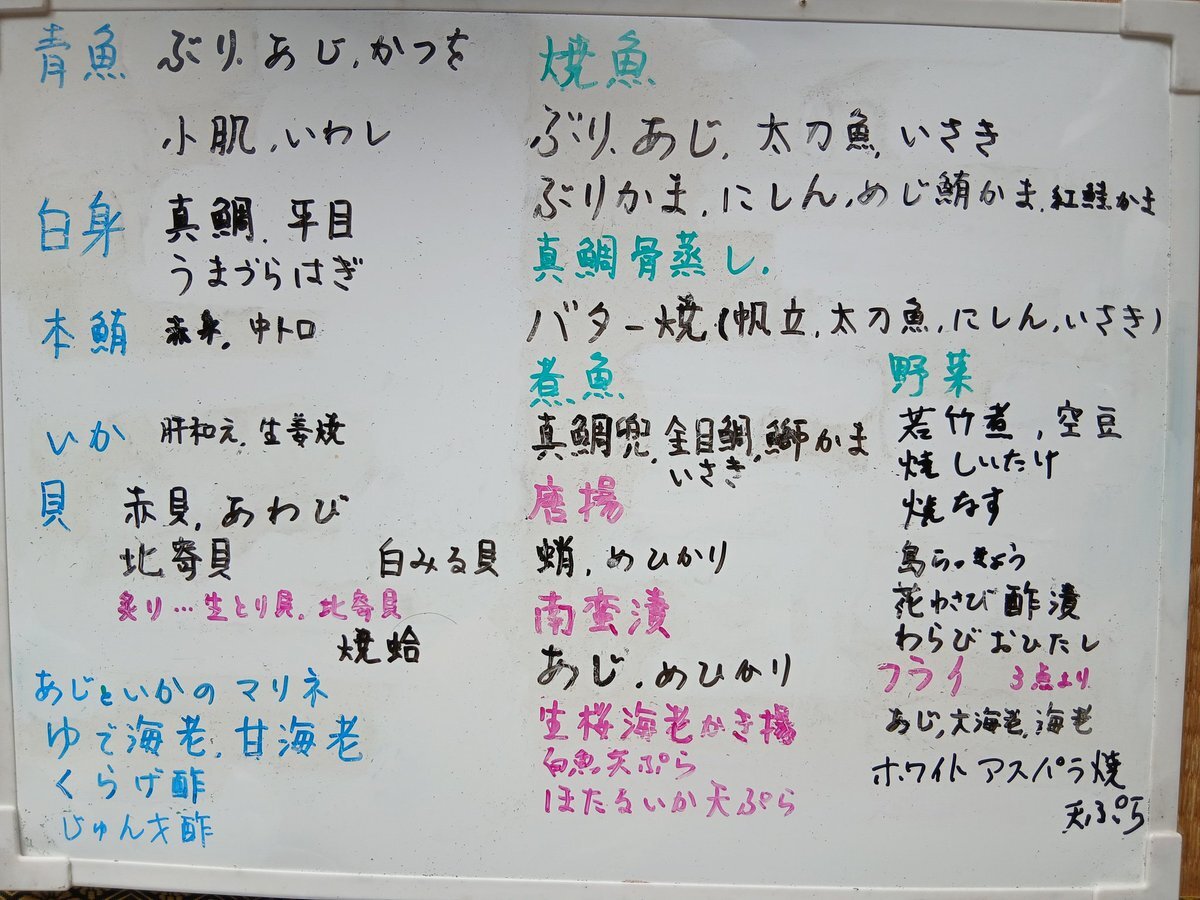 青魚 ぶり、あじ、かつを
小肌、いわし
白身 真鯛、平目
うまづらはぎ
本鮪 赤身、中トロ
いか 肝和え、生姜焼
貝 赤貝、あわび
北寄貝 白みる貝
炙り…生とり貝、北寄貝
焼蛤
あじといかのマリネ
ゆで海老、甘海老
くらげ酢
じゅんさ才酢
焼魚
ぶり、あじ、太刀魚、いさき
ぶりかま、にしん、めじ鮪かま、紅鮭かま
真鯛骨蒸し、
バター焼(帆立、太刀魚、にしん、いさき)
煮魚
真鯛兜、金目鯛、鰤かま
いさき
唐揚
蛸、めひかり
南蛮漬
あじ、めひかり
生桜海老かき揚
白魚天ぷら
ほたるいか天ぷら
野菜
若竹煮、空豆
焼しいたけ
焼なす
島らっきょう
花わさび酢漬
わらびおひたし
フライ 3点より
あじ、大海老、海老
ホワイトアスパラ焼
天ぷら